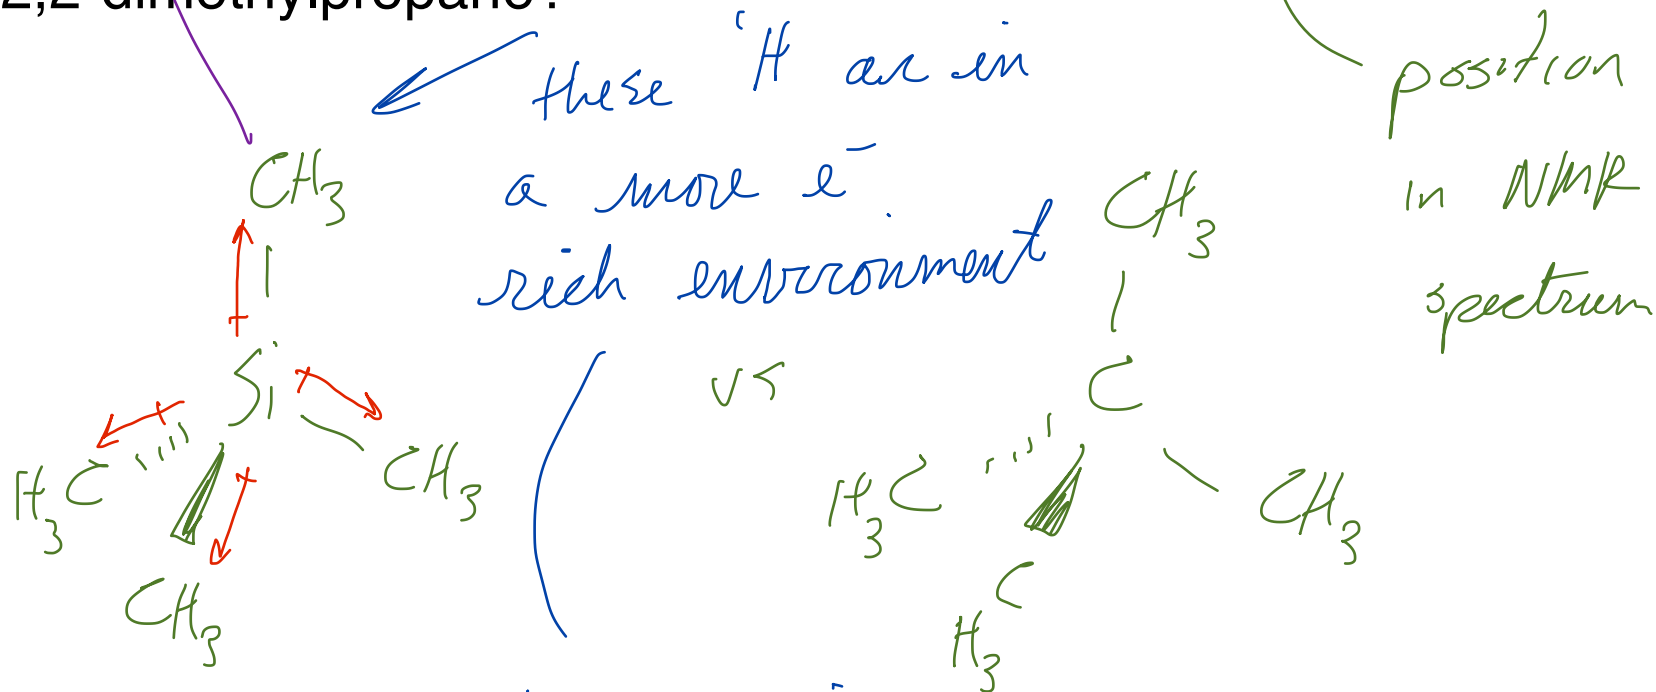 2,2-dimethylpropane?
these ¹H are in
a more e⁻
rich environment
position
in NMR
spectrum
CH₃
Si
H₃C
CH₃
CH₃
vs
CH₃
C
H₃C
CH₃
C
H₃